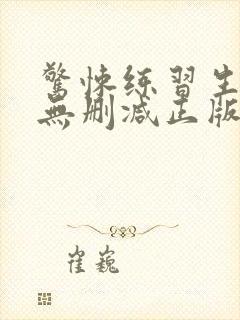 驚悚练習生
無删减正版
崔巍